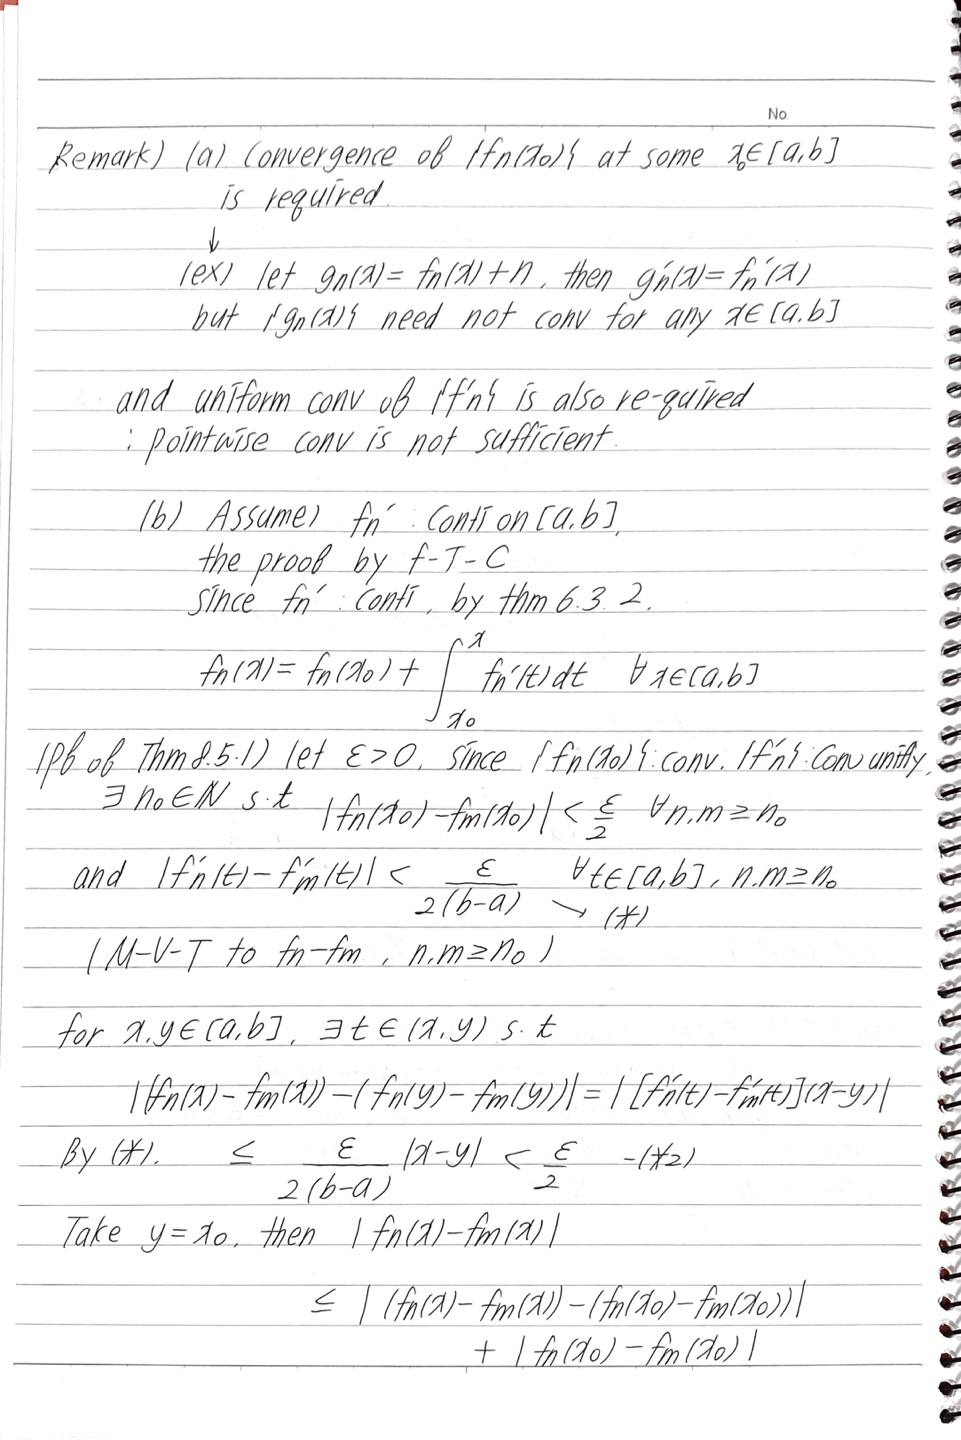 No.
Remark) (a) Convergence of {fn(x0)} at some x0∈[a,b]
is required.
↓
(ex) let gn(x)= fn(x)+n, then gn′(x)=fn′(x)
but {gn(x)} need not conv for any x∈[a,b]
and uniform conv of {f′n} is also re-quired
: pointwise conv is not sufficient.
(b) Assume) fn′ : Conti on [a,b],
the proof by f-T-C
since fn′ : conti, by thm 6.3.2,
fn(x)= fn(x0) + ∫_{x0}^{x} fn′(t)dt ∀x∈[a,b]
(pf of Thm8.5.1) let ε>0, since {fn(x0)}:conv. {f′n}:Conv unifly,
∃n0∈N s.t |fn(x0)-fm(x0)| < ε/2 ∀n.m≥n0
and |f′n(t)-f′m(t)| < ε/2(b-a) ∀t∈[a,b], n.m≥n0
↘ (*)
(M-V-T to fn-fm, n.m≥n0)
for x.y∈[a,b], ∃t∈(x,y) s.t
|(fn(x)-fm(x))-(fn(y)-fm(y))|=|[f′n(t)-f′m(t)](x-y)|
By (*). ≤ ε/2(b-a) |x-y| < ε/2 -(*2)
Take y=x0, then |fn(x)-fm(x)|
≤ |(fn(x)-fm(x))-(fn(x0)-fm(x0))|
+ |fn(x0)-fm(x0)|